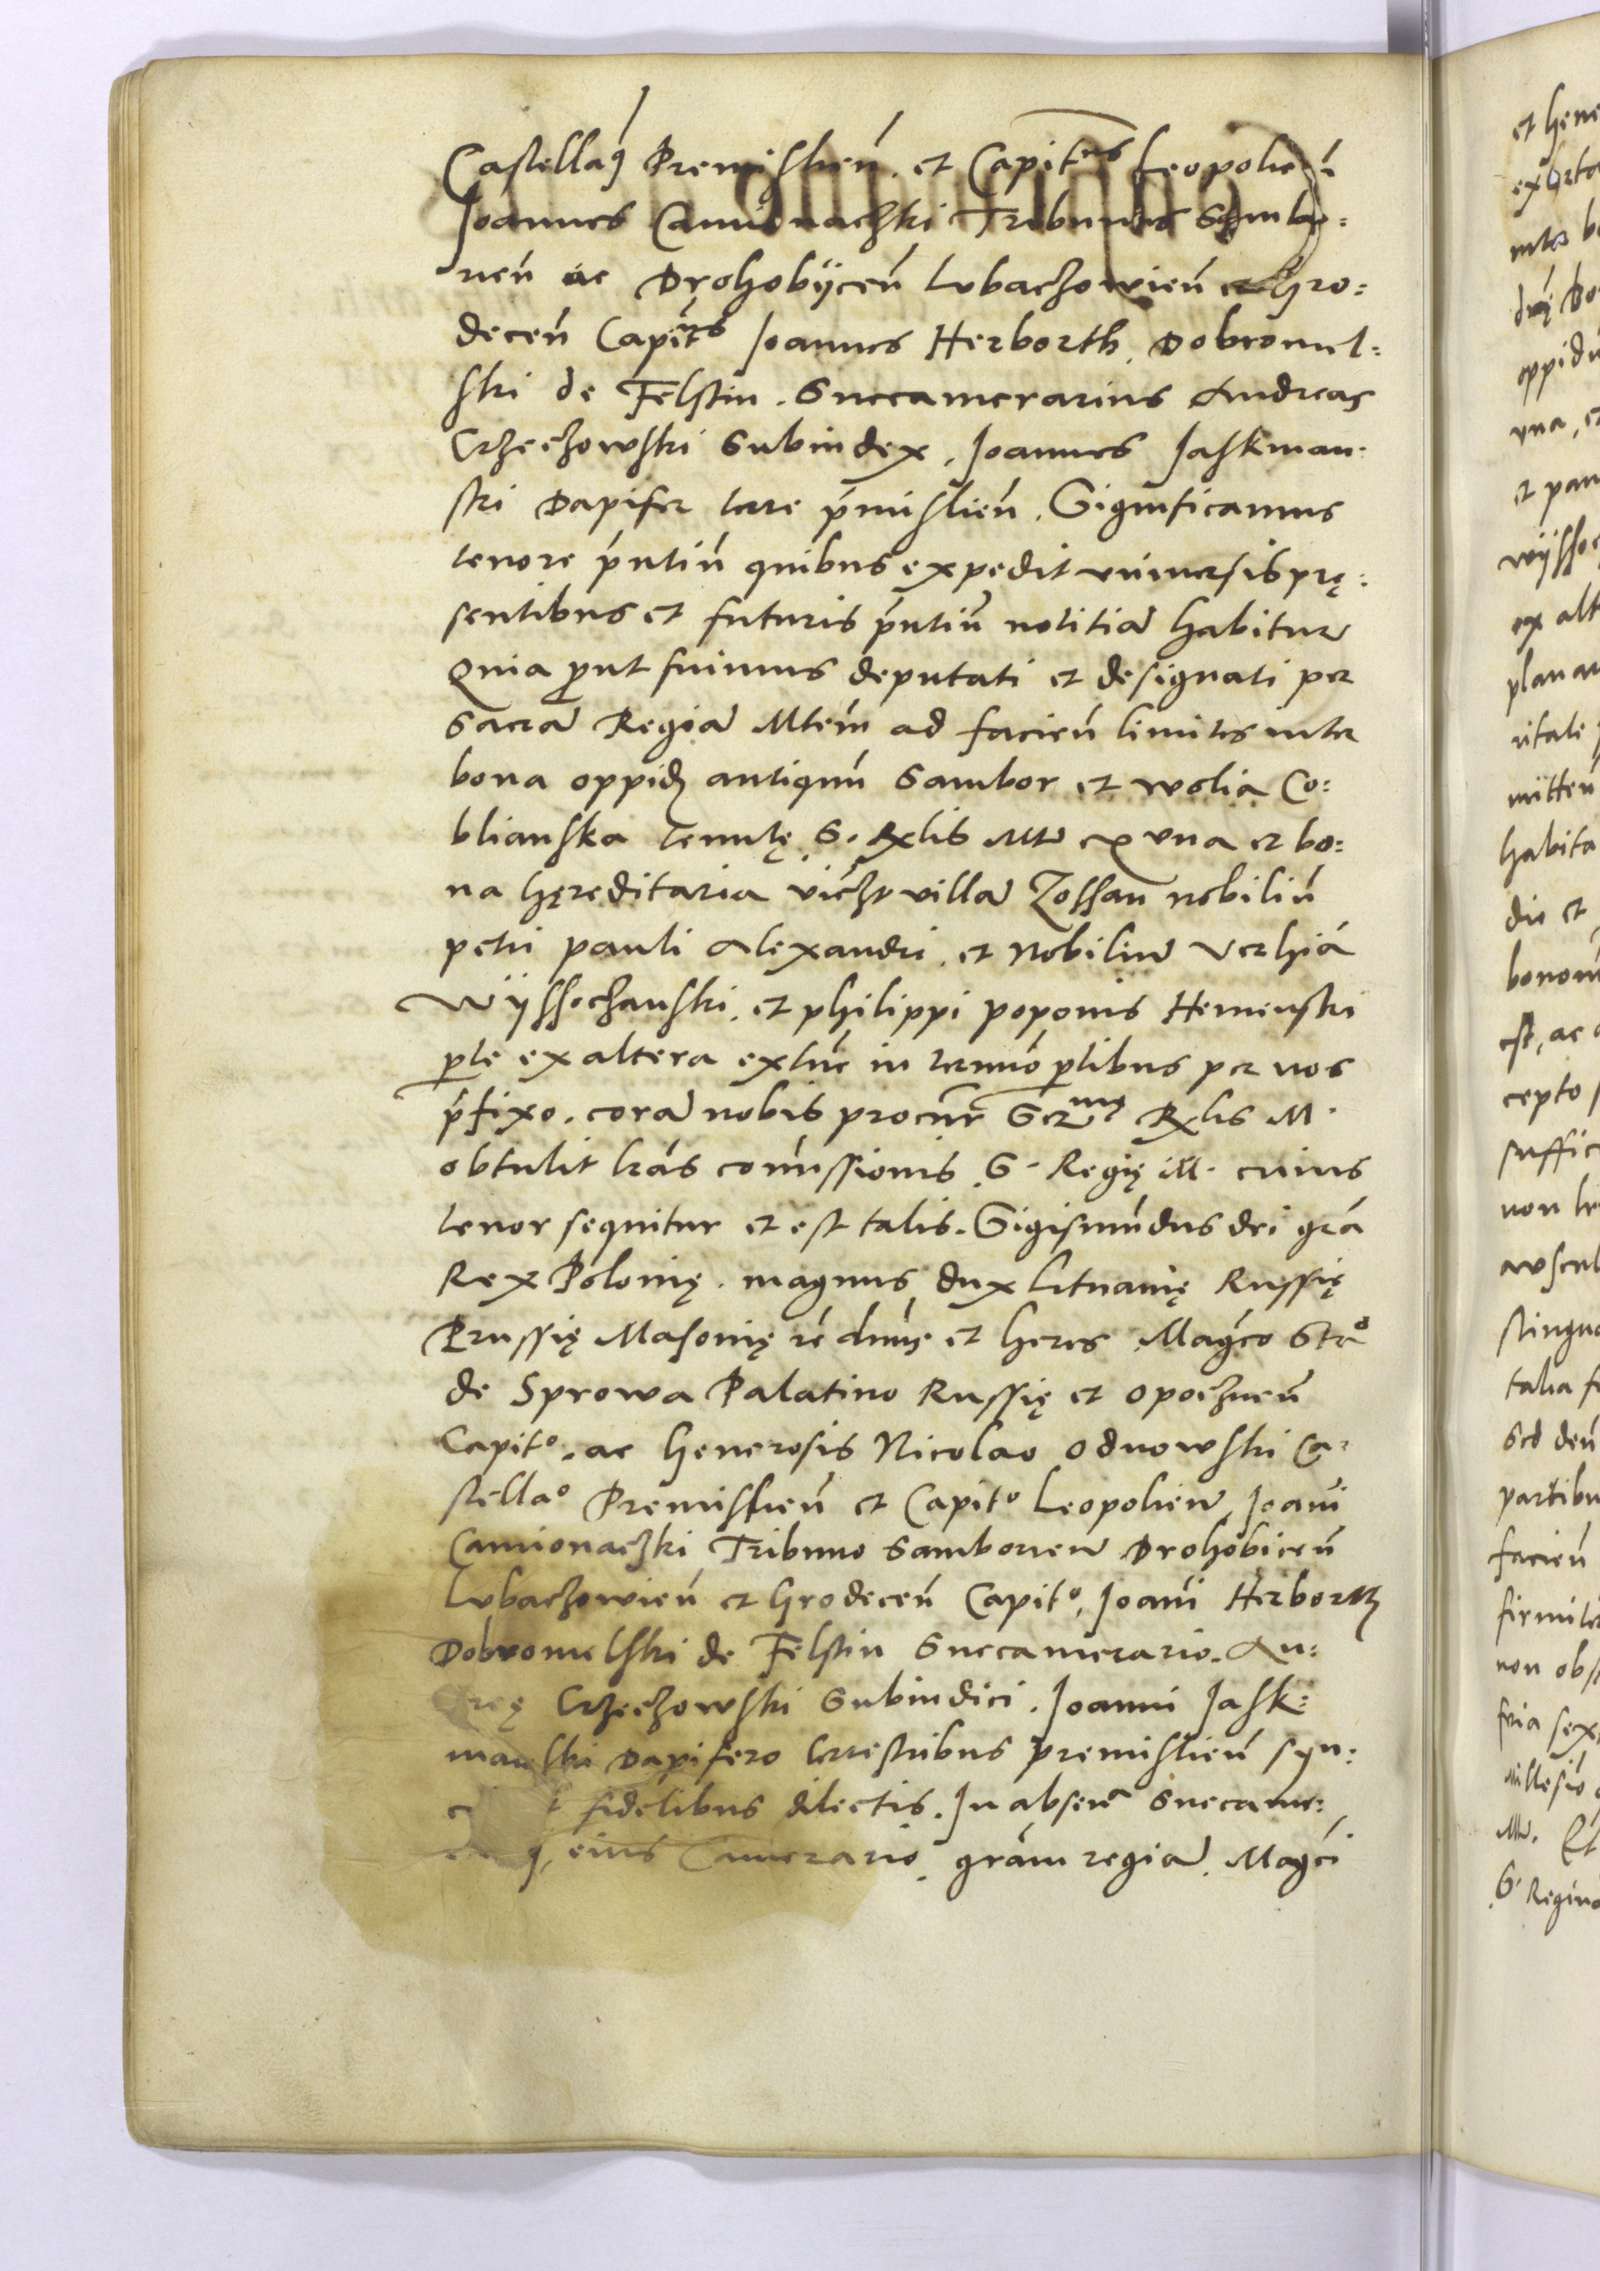 Castellaꝯ Premislień. et Capitꝯⁿˢ Leopolień
Joannes Camionaczki Tribunus Sambo:
rień ac Drohobÿceń Lubaczowień et Gro:
deceń Capit̃ⁿˢ Joannes Herborth Dobromil:
ski de Felstin. Succamerarius Andreas
Crzeczowski Subiudex. Joannes Jaskman:
ski Dapifer terre p̃mislień. Significamus
tenore p̃ntiũ quibus expedit vniuersis prę:
sentibus et futuris p̃ntiũ notitiã habitur̃
Quia ꝓut fuimus deputati et designati per
Sacrã Regiã Mtem̃ ad facień limites inter
bona oppidj antiquũ Sambor et wolia Co:
blianska tenutę S. Rxlis Mtt̃ ex vna et bo:
na hęreditaria vicz̃t villã Zossan nobiliũ
petri pauli Alexandri. et Nobiliũ verhiá
Wÿssoczanski. et philippi poponis Hemenski
ꝑte ex altera extũc in termõ ꝑtibus per nos
p̃fixo. corã nobis procur̃ Serᵐᵉ̨ Rxlis M.
obtulit lrãs comĩssionis S. Regię M. cuius
tenor sequitur et est talis. Sigismũdus dei grã
Rex Polonię. magnus dux Lituanię Russię
Prussię Masouię rc̃ dnũs et heres Magc̃o Staᵒ
de Sprowa Palatino Russię et opoczneń
Capitᵒ. ac Generosis Nicolao odnowski Ca:
stellaᵒ Premislień et Capitᵒ Leopolień Joañi
Camionaczki Tribuno Samborień Drohobiceń
Lubaczowień et Grodeceń Capitᵒ, Joañi Herborth
Dobromelski de Felstin Succamerario. An:
dreę Crzeczowski Subiudici. Joanni Jask:
manski Dapifero terrestribus premislień syn:
fidelibus dilectis. In absenã Succame:
eius Camerario grãm regiã. Magc̃i